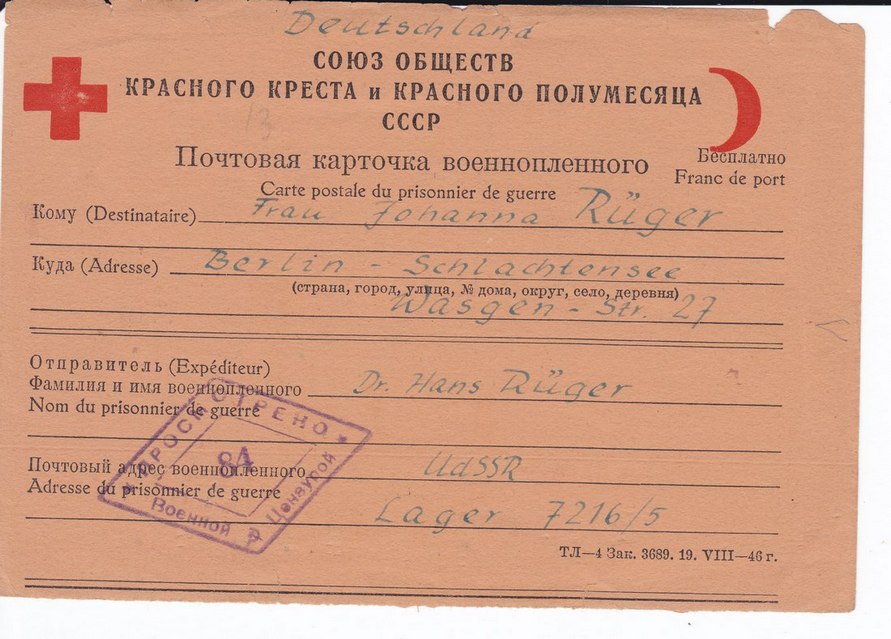 Deutschland
СОЮЗ ОБЩЕСТВ
КРАСНОГО КРЕСТА и КРАСНОГО ПОЛУМЕСЯЦА
СССР
13
Почтовая карточка военнопленного
Бесплатно
Carte postale du prisonnier de guerre
Franc de port
Кому (Destinataire) Frau Johanna Rüger
Куда (Adresse) Berlin - Schlachtensee
(страна, город, улица, № дома, округ, село, деревня)
Wasgen - Str. 27
Отправитель (Expéditeur)
Фамилия и имя военнопленного Dr. Hans Rüger
Nom du prisonnier de guerre
Почтовый адрес военнопленного UdSSR
Adresse du prisonnier de guerre
Lager 7216/5
ПРОСМОТРЕНО
84
Военной Цензурой
ТЛ—4 Зак. 3689. 19. VIII—46 г.